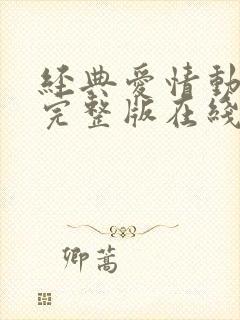 經典愛情動
完整版在綫
卿蒿